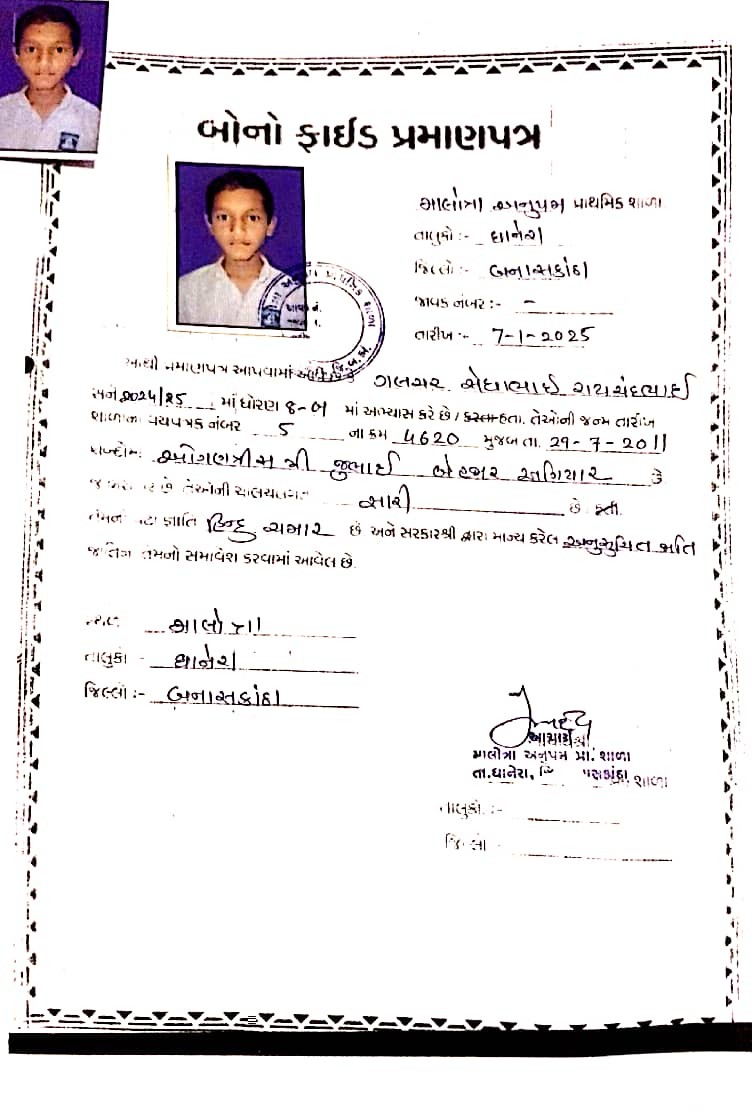 બોનો ફાઈડ પ્રમાણપત્ર
માલોત્રા અનુપમ પ્રાથમિક શાળા
તાલુકો :- ધાનેરા
જિલ્લો :- બનાસકાંઠા
જાવક નંબર :- -
તારીખ :- 7-1-2025
આથી પ્રમાણપત્ર આપવામાં આવે છે કે ગલચર મેઘાભાઈ રાયચંદભાઈ
સને 2024/25 માં ધોરણ 8-બ માં અભ્યાસ કરે છે / કરતા હતા. તેઓની જન્મ તારીખ
શાળાના વયપત્રક નંબર 5 ના ક્રમ 4620 મુજબ તા. 29-7-2011
શબ્દોમાં ઓગણત્રીસ મી જુલાઈ બેહજાર અગિયાર છે
તેઓની ચાલચલગત સારી છે હતી.
તેમની જ્ઞાતિ હિન્દુ ચમાર છે અને સરકારશ્રી દ્વારા માન્ય કરેલ અનુસુચિત જાતિ
જાતિમાં તેમનો સમાવેશ કરવામાં આવેલ છે.
સ્થળ માલોત્રા
તાલુકો - ધાનેરા
જિલ્લો :- બનાસકાંઠા
આચાર્યશ્રી
માલોત્રા અનુપમ પ્રા. શાળા
તા.ધાનેરા, શાળા
તાલુકો :-
જિલ્લો -